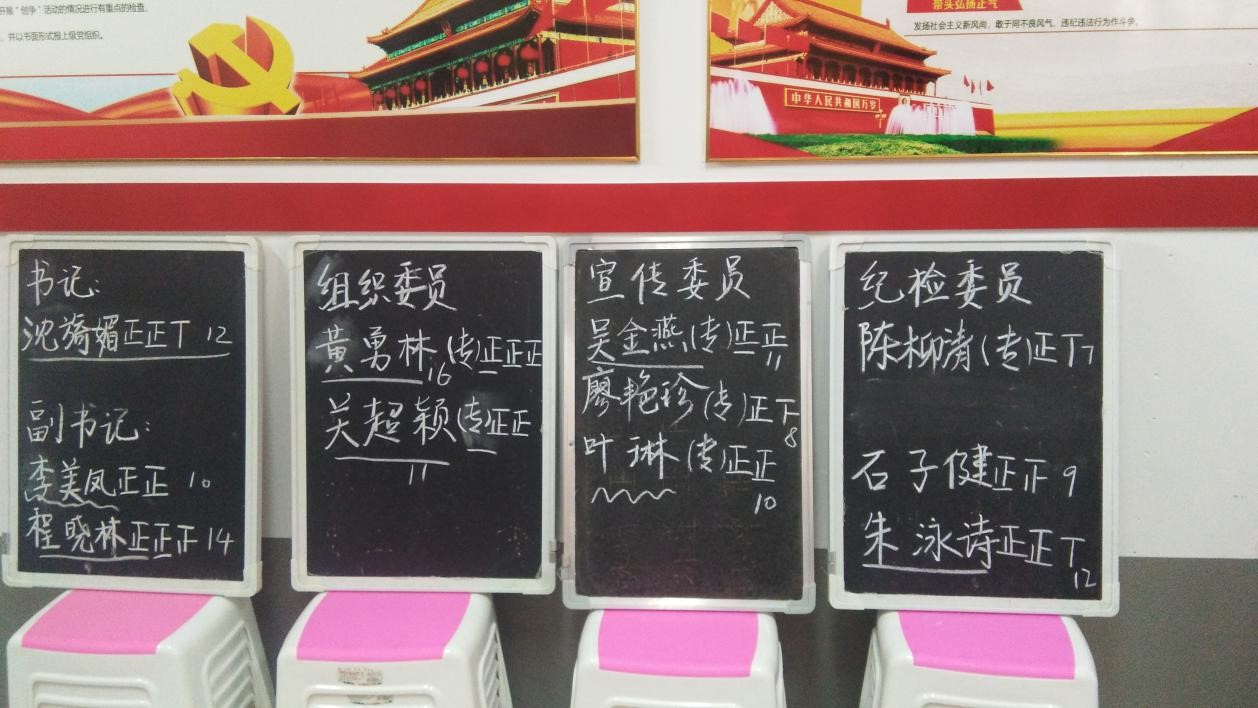 开展“创争”活动的情况进行有重点的检查。
并以书面形式报上级党组织。
带头弘扬正气
发扬社会主义新风尚，敢于同不良风气、违纪违法行为作斗争。
中华人民共和国万岁
书记：
沈旖媚正正丅 12
副书记：
李美凤正正 10
程晓林正正正 14
组织委员
黄勇林(专)正正正
16
关超颖(专)正正
11
宣传委员
吴金燕(专)正正
11
廖艳珍(专)正下
8
叶琳(专)正正
10
纪检委员
陈柳清(专)正丅7
石子健正正 9
朱泳诗正正丅
12